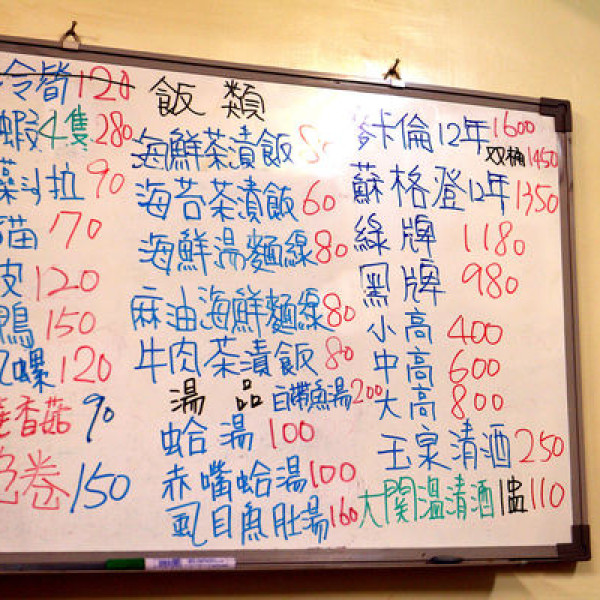 120
飯類
蝦4隻280
沙拉90
貓70
皮120
鴨150
螺120
香菇90
卷150
海鮮茶漬飯80
海苔茶漬飯60
海鮮湯麵線80
麻油海鮮麵線80
牛肉茶漬飯80
湯品
白帶魚湯200
蛤湯100
赤嘴蛤湯100
虱目魚肚湯160
卡倫12年1600
双桶1450
蘇格登12年1350
綠牌1180
黑牌980
小高400
中高600
大高800
玉泉清酒250
大関溫清酒1盅110